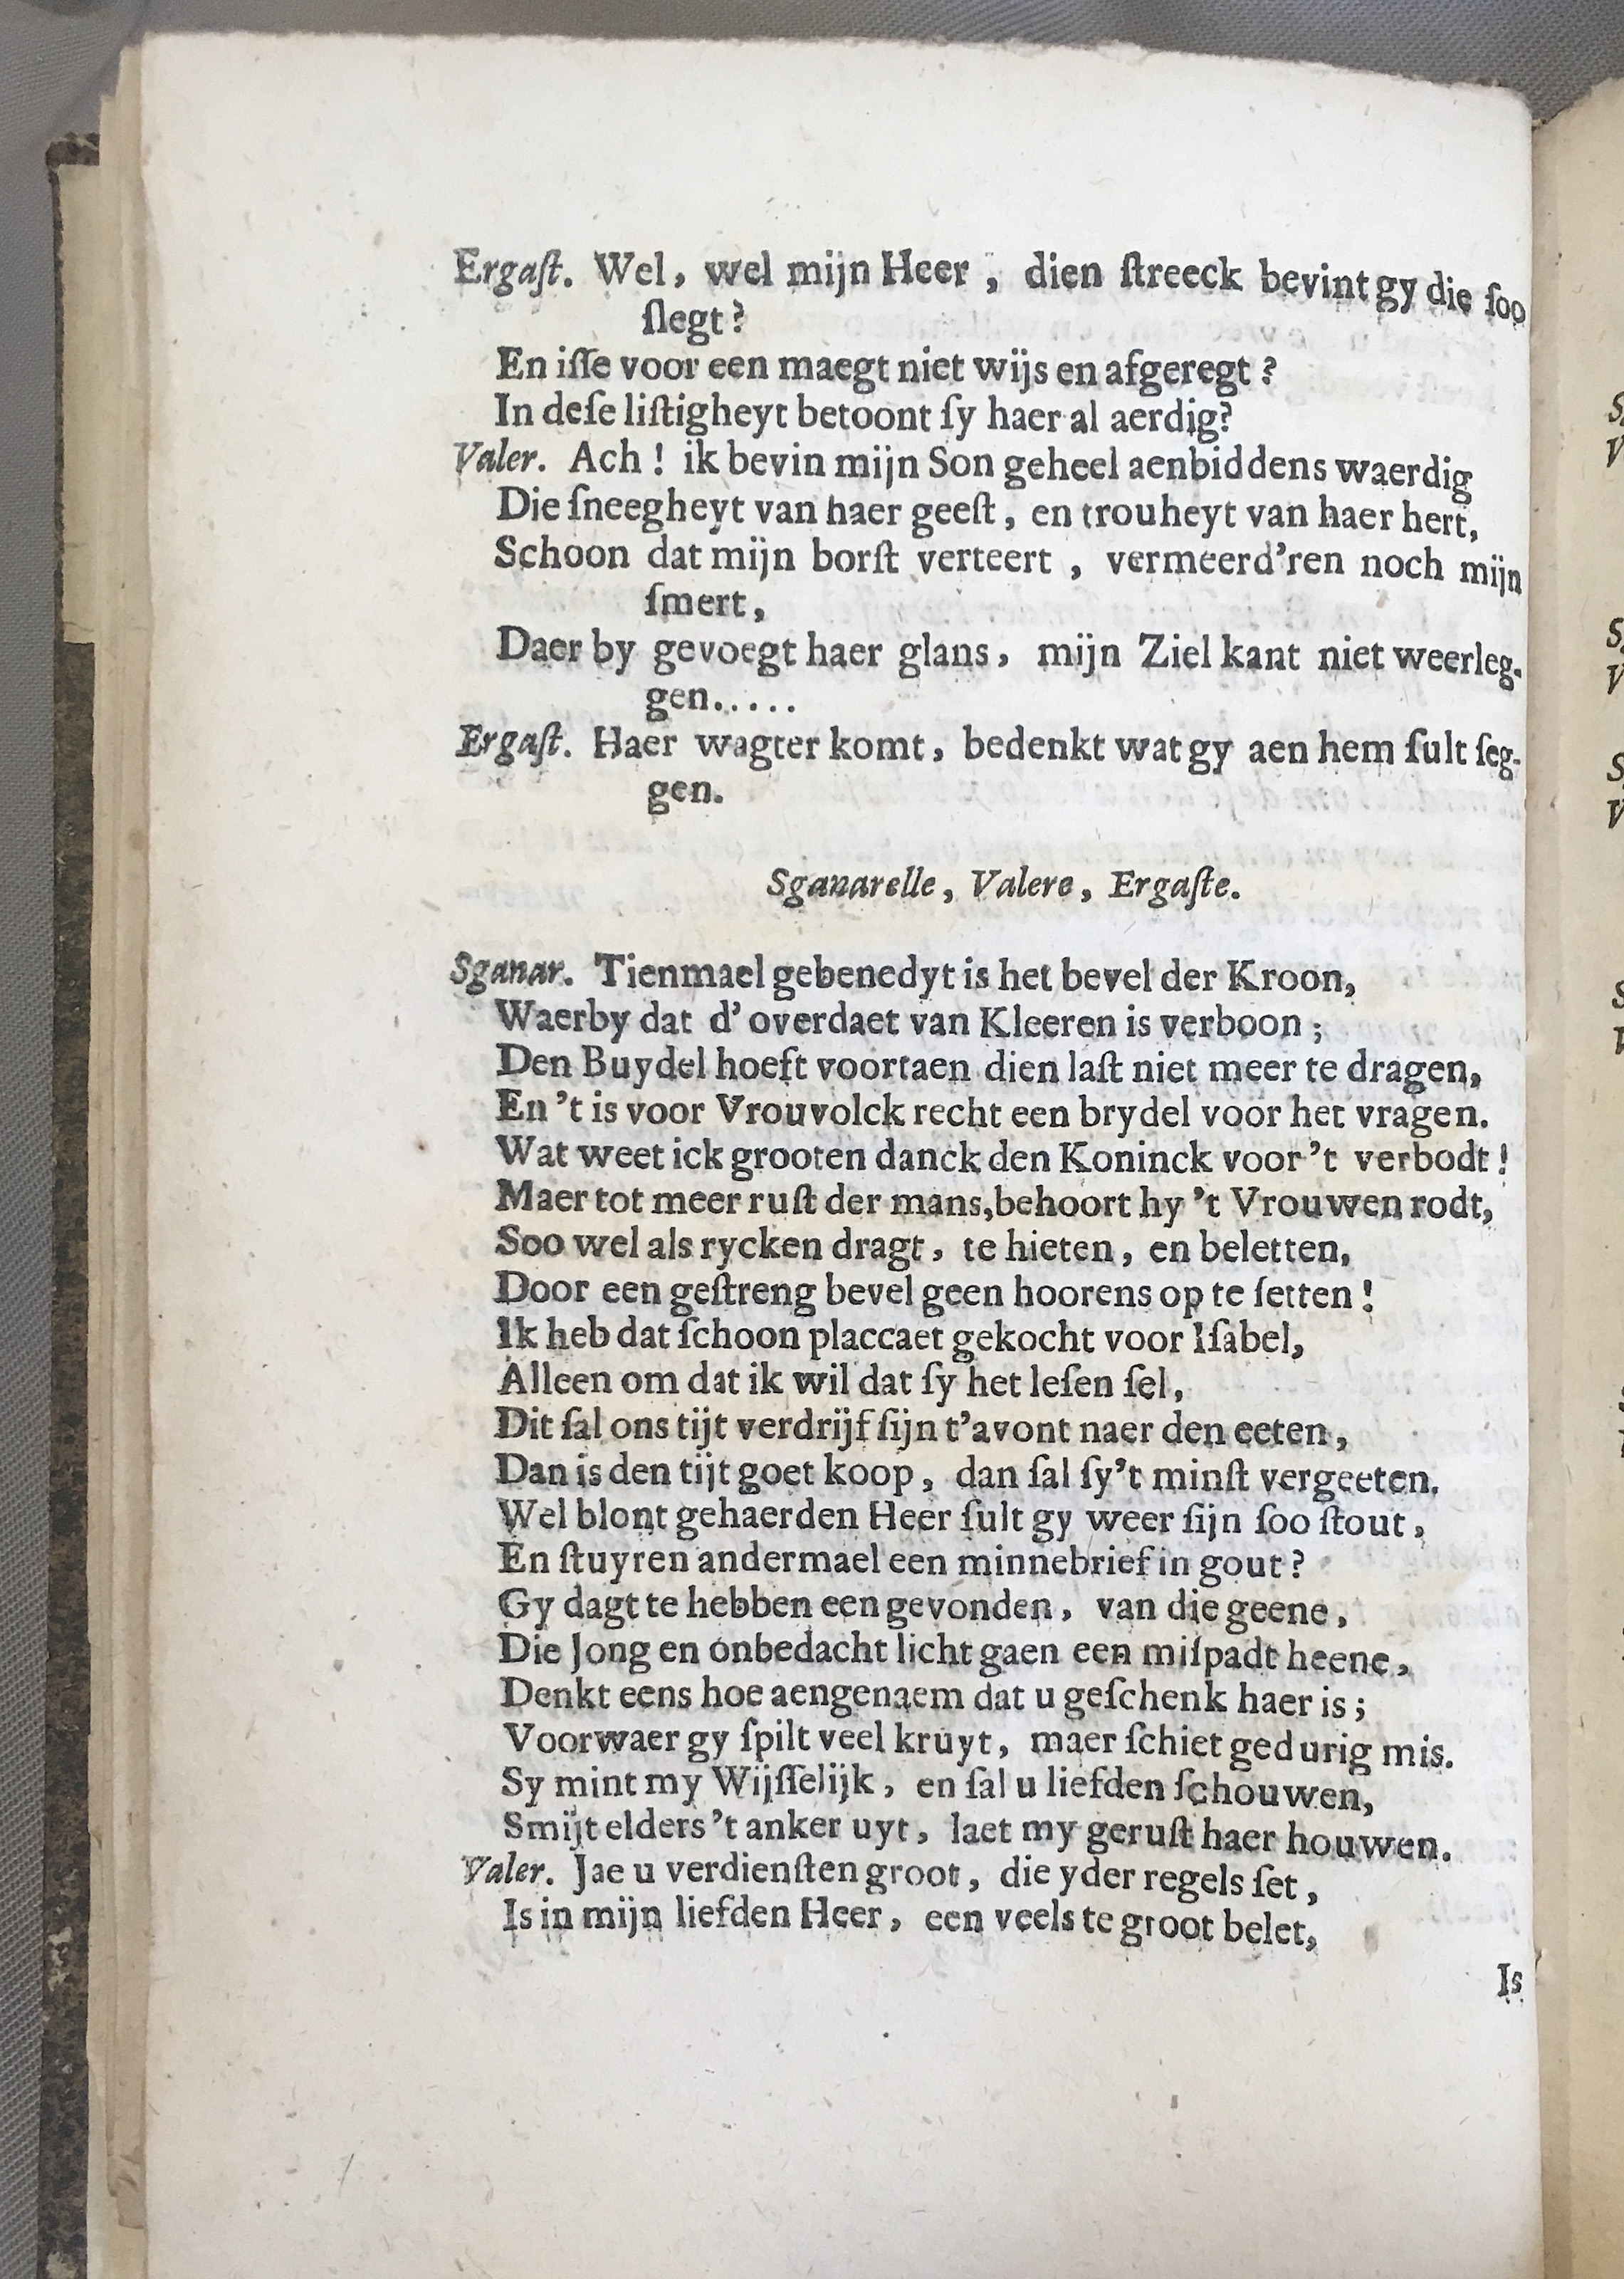 Ergaſt. Wel, wel mijn Heer, dien ſtreeck bevint gy die ſoo
ſlegt?
En iſſe voor een maegt niet wijs en afgeregt?
In deſe liſtigheyt betoont ſy haer al aerdig?
Valer. Ach! ik bevin mijn Son geheel aenbiddens waerdig
Die ſneegheyt van haer geeſt, en trouheyt van haer hert,
Schoon dat mijn borſt verteert, vermeerd'ren noch mijn
ſmert,
Daer by gevoegt haer glans, mijn Ziel kant niet weerleg-
gen.....
Ergaſt. Haer wagter komt, bedenkt wat gy aen hem ſult ſeg-
gen.
Sganarelle, Valere, Ergaſte.
Sganar. Tienmael gebenedyt is het bevel der Kroon,
Waerby dat d'overdaet van Kleeren is verboon;
Den Buydel hoeft voortaen dien laſt niet meer te dragen,
En 't is voor Vrouvolck recht een brydel voor het vragen.
Wat weet ick grooten danck den Koninck voor 't verbodt!
Maer tot meer ruſt der mans, behoort hy 't Vrouwen rodt,
Soo wel als rycken dragt, te hieten, en beletten,
Door een geſtreng bevel geen hoorens op te ſetten!
Ik heb dat ſchoon placcaet gekocht voor Iſabel,
Alleen om dat ik wil dat ſy het leſen ſel,
Dit ſal ons tijt verdrijf ſijn t'avont naer den eeten,
Dan is den tijt goet koop, dan ſal ſy't minſt vergeeten.
Wel blont gehaerden Heer ſult gy weer ſijn ſoo ſtout,
En ſtuyren andermael een minnebrief in gout?
Gy dagt te hebben een gevonden, van die geene,
Die Jong en onbedacht licht gaen een miſpadt heene,
Denkt eens hoe aengenaem dat u geſchenk haer is;
Voorwaer gy ſpilt veel kruyt, maer ſchiet gedurig mis.
Sy mint my Wijſſelijk, en ſal u liefden ſchouwen,
Smijt elders 't anker uyt, laet my geruſt haer houwen.
Valer. Jae u verdienſten groot, die yder regels ſet,
Is in mijn liefden Heer, een veels te groot belet,
Is